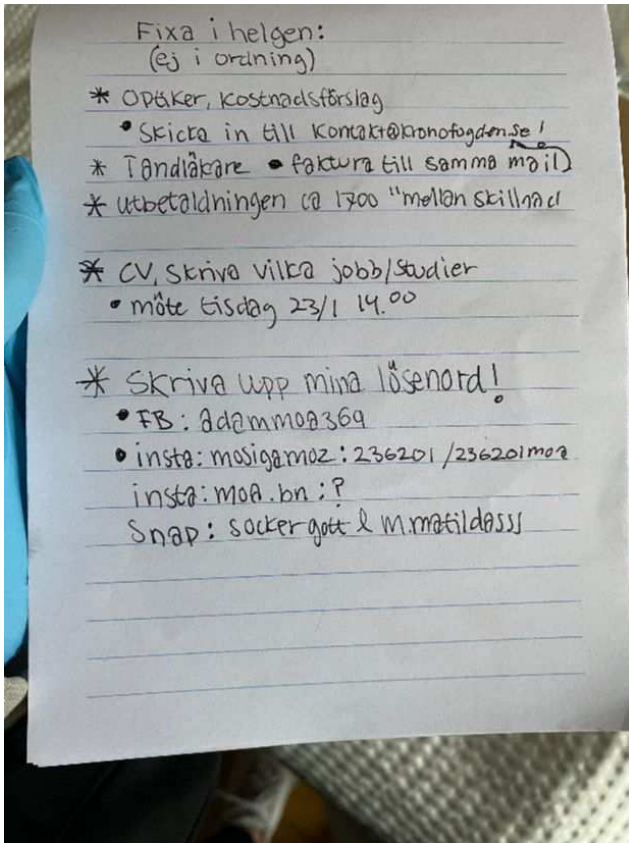 Fixa i helgen:
(ej i ordning)
* Optiker, kostnadsförslag
• Skicka in till kontakt@kronofogden.se!
* Tandläkare • faktura till samma mail)
* utbetaldningen ca 1700 "mellan skillnad
* CV, skriva vilka jobb/studier
• möte tisdag 23/1 14.00
* Skriva upp mina lösenord!
• FB: adammoa369
• insta: mosigamoz: 236201 /236201moa
insta: moa.bn: ?
Snap: sockergott & m.matildasss